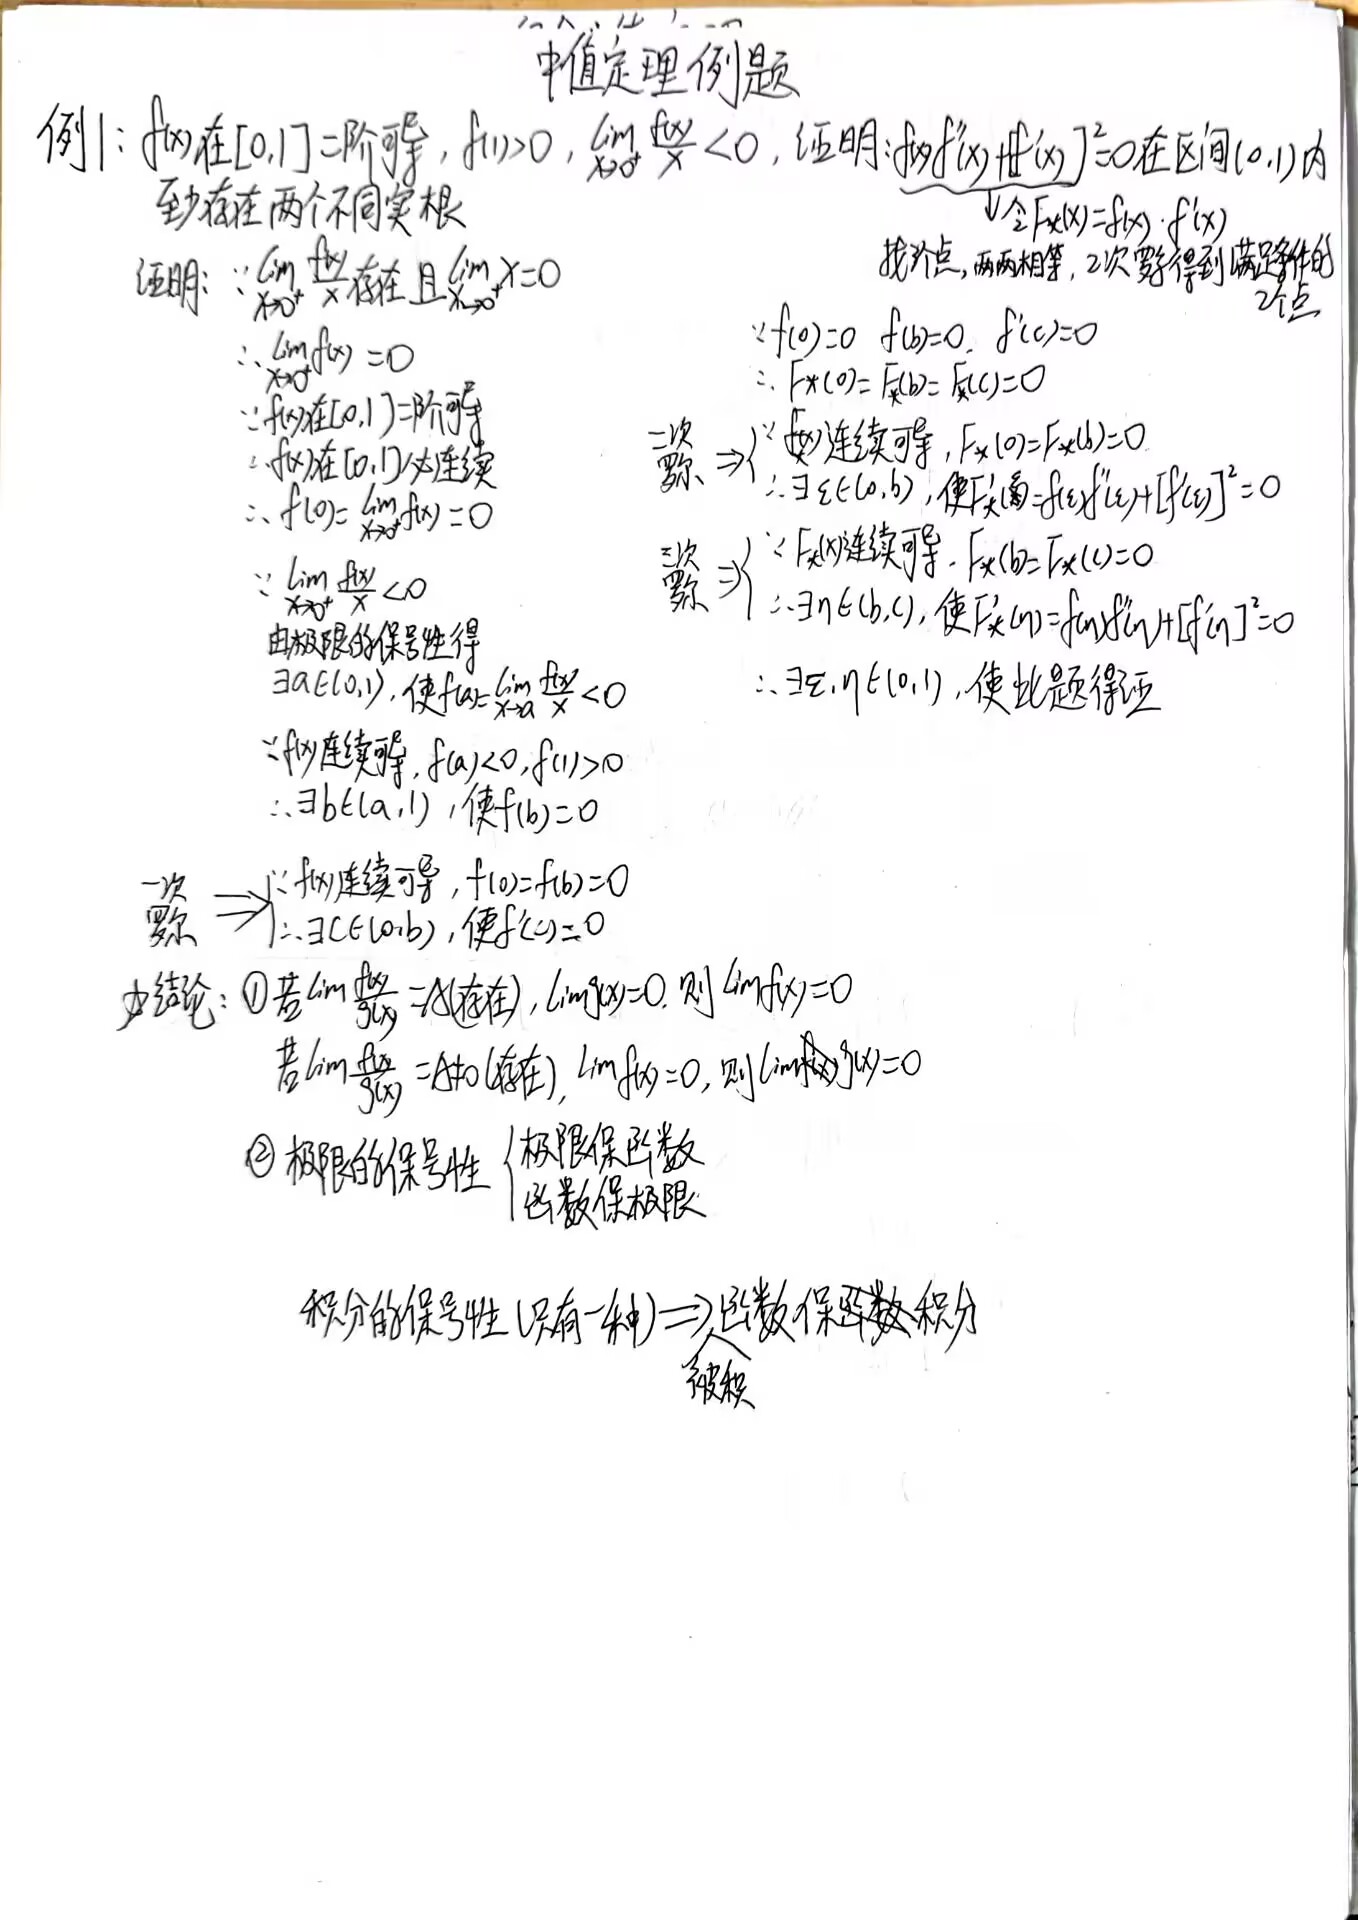 中值定理例题
例1: f(x)在[0,1]二阶可导, f(1)>0, lim x→0⁺ f(x)/x <0, 证明: f(x)f''(x)+[f'(x)]²=0在区间(0,1)内
至少存在两个不同实根
↓令F*(x)=f(x)·f'(x)
找3个点, 两两相等, 2次罗尔得到满足条件的
2个点
证明: ∵ lim x→0⁺ f(x)/x 存在且 lim x→0⁺ x=0
∴ lim x→0⁺ f(x)=0
∵ f(x)在[0,1]二阶可导
∴ f(x)在[0,1]必连续
∴ f(0)= lim x→0⁺ f(x)=0
∵ lim x→0⁺ f(x)/x <0
由极限的保号性得
∃a∈(0,1), 使f(a)= lim x→a f(x)/x <0
∵ f(x)连续可导, f(a)<0, f(1)>0
∴ ∃b∈(a,1), 使f(b)=0
一次
罗尔 ⇒ { ∵ f(x)连续可导, f(0)=f(b)=0
∴ ∃c∈(0,b), 使f'(c)=0
∵ f(0)=0 f(b)=0, f'(c)=0
∴ F*(0)=F*(b)=F*(c)=0
二次
罗尔 ⇒ { ∵ f(x)连续可导, F*(0)=F*(b)=0
∴ ∃ξ∈(0,b), 使F*'(ξ)=f(ξ)f''(ξ)+[f'(ξ)]²=0
三次
罗尔 ⇒ { ∵ F*(x)连续可导, F*(b)=F*(c)=0
∴ ∃η∈(b,c), 使F*'(η)=f(η)f''(η)+[f'(η)]²=0
∴ ∃ξ,η∈(0,1), 使此题得证
小结论: ① 若lim f(x)/g(x) =A(存在), lim g(x)=0, 则 lim f(x)=0
若lim f(x)/g(x) =A≠0(存在), lim f(x)=0, 则 lim g(x)=0
② 极限的保号性 { 极限保函数
函数保极限
积分的保号性(只有一种)⇒ 被积函数保积分